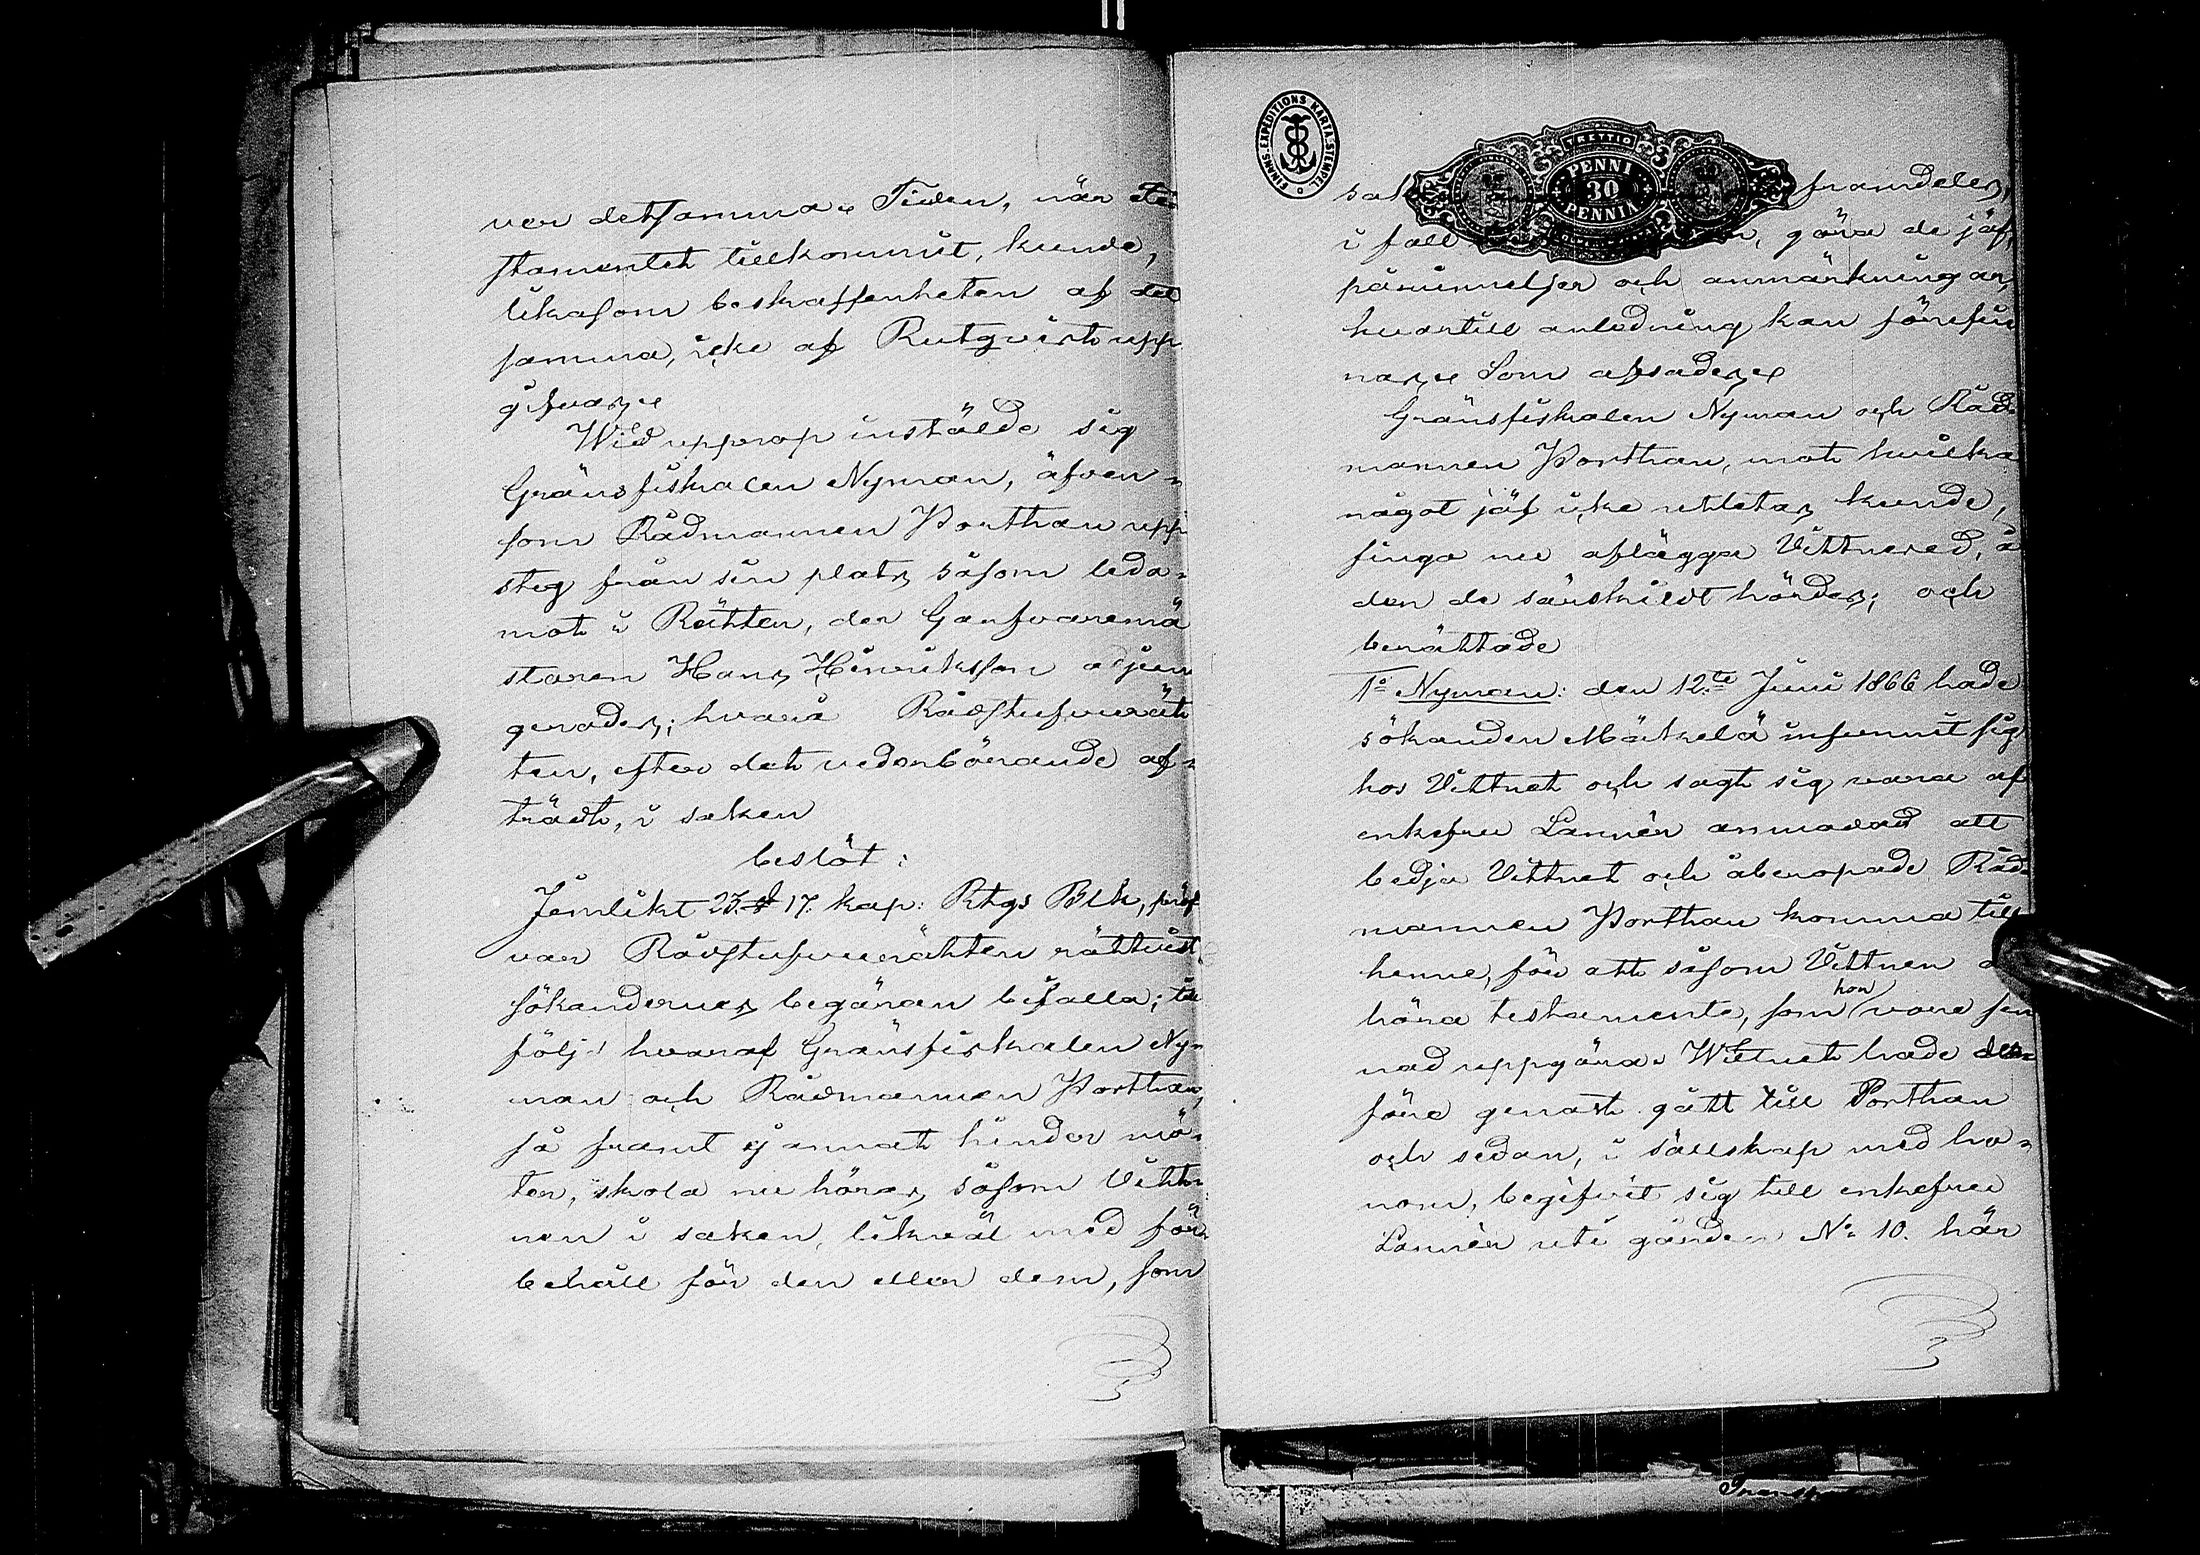 ver detsamma. Tiden, när te-
stamentet tillkommit, kunde,
likasom beskaffenheten af det
samma, icke af Rutqvist upp
gifvas.
Wid upprop instälde sig
Gränsfiskalen Nyman, äfven-
som Rådmannen Porthan upp
steg från sin plats såsom leda-
mot i Rätten, der Garfvaremä
staren Hans Henriksson adjun
gerades; hvarå Rådstufvurät
ten, efter det vederbörande af-
trädt, i saken
beslöt:
Jemlikt 23. § 17. kap. Rtgs Blk, pröf
var Rådstufvurätten rättvist
sökandernes begäran bifalla; till
följd hvaraf Gränsfiskalen Ny-
man och Rådmannen Porthan,
så framt ej annat hinder mö-
ter, skola nu höras såsom Vittn
nen i saken, likväl med för
behåll för den eller dem, som
FINANS-EXPEDITIONS KARTA-STEMPEL
TRETTIO
PENNI
30
PENNIÄ
sak framdeles,
i fall göra de jäf,
påminnelser och anmärkningar,
hvartill anledning kan förefin
nas. Som afsades.
Gränsfiskalen Nyman och Råd
mannen Porthan, mot hvilka
något jäf icke utletas kunde,
fingo nu aflägga Vittnesed, å
den de särskildt hördes; och
berättade
1o Nyman: den 12te Juni 1866 hade
sökanden Mäkelä infunnit sig
hos Vittnet och sagt sig vara af
enkefru Lannér anmodad att
bedja Vittnet och åberopade Råd-
mannen Porthan komma till
henne, för att såsom Vittnen å
höra testamente, som hon vore sin
nad uppgöra. Wittnet hade der-
före genast gått till Porthan
och sedan, i sällskap med ho-
nom, begifvit sig till enkefru
Lannér uti gården No 10. här